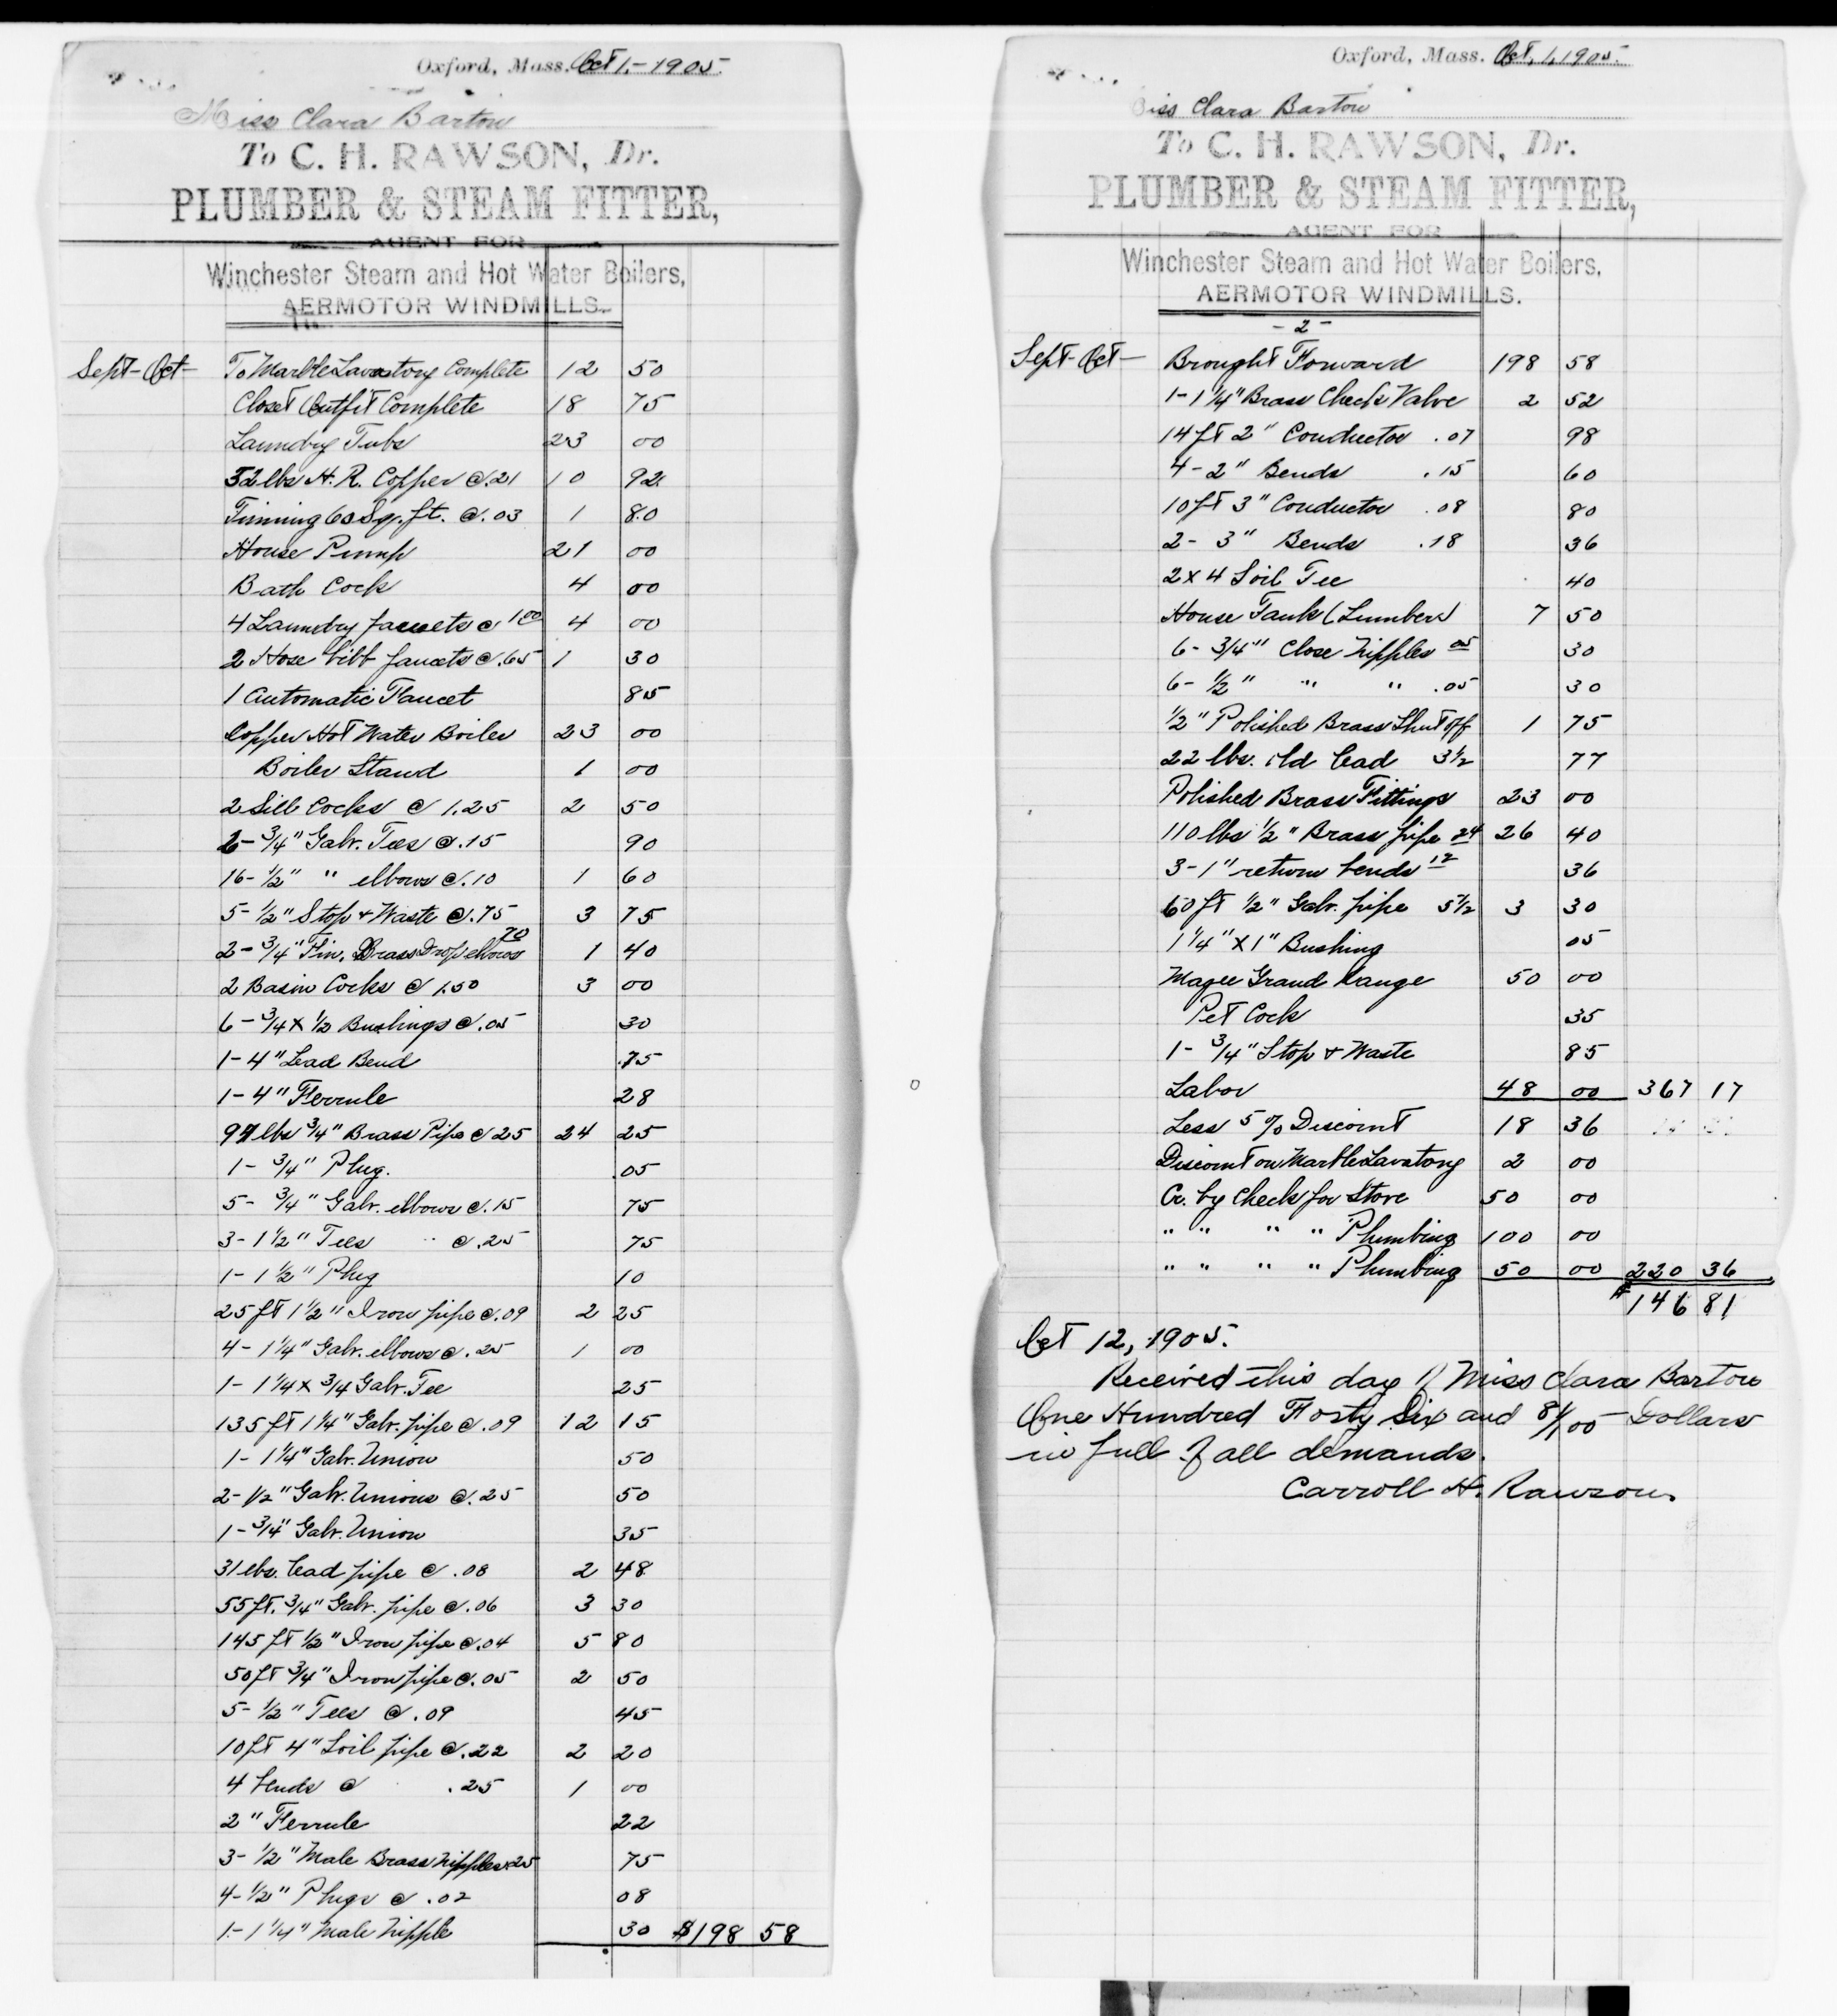 Oxford, Mass. Oct 1,-1905.
Miss Clara Barton
To C. H. RAWSON, Dr.
PLUMBER & STEAM FITTER,
AGENT FOR
Winchester Steam and Hot Water Boilers,
AERMOTOR WINDMILLS.
Sept-Oct- To Marble Lavatory Complete 12 50
Closet Outfit Complete 18 75
Laundry Tubs 23 00
52 lbs H. R. Copper @ .21 10 92
Tinning 60 Sq. ft. @ .03 1 80
House Pump 21 00
Bath Cock 4 00
4 Laundry faucets @ 1 00 4 00
2 Hose bibb faucets @ .65 1 30
1 Automatic Faucet 85
Copper Hot Water Boiler 23 00
Boiler Stand 1 00
2 Sill Cocks @ 1.25 2 50
6- 3/4" Galv. Tees @ .15 90
16- 1/2" " elbows @ .10 1 60
5- 1/2" Stop & Waste @ .75 3 75
2- 3/4" Fin. Brass Drop elbows 70 1 40
2 Basin Cocks @ 1.50 3 00
6- 3/4 x 1/2 Bushings @ .05 30
1- 4" Lead Bend .75
1- 4" Ferrule 28
97 lbs 3/4" Brass Pipe @ 25 24 25
1- 3/4" Plug. .05
5- 3/4" Galv. elbows @ .15 75
3- 1 1/2" Tees " @ .25 75
1- 1 1/2" Plug 10
25 ft 1 1/2" Iron pipe @ .09 2 25
4- 1 1/4" Galv. elbows @ .25 1 00
1- 1 1/4 x 3/4 Galv. Tee 25
135 ft 1 1/4" Galv. pipe @ .09 12 15
1- 1 1/4" Galv. Union 50
2- 1/2" Galv. Unions @ .25 50
1- 3/4" Galv. Union 35
31 lbs. Lead pipe @ .08 2 48
55 ft. 3/4" Galv. pipe @ .06 3 30
145 ft 1/2" Iron pipe @ .04 5 80
50 ft 3/4" Iron pipe @ .05 2 50
5- 1/2" Tees @ .09 45
10 ft 4" Soil pipe @ .22 2 20
4 bends @ .25 1 00
2" Ferrule 22
3- 1/2" Male Brass Nipples 25 75
4- 1/2" Plugs @ .02 08
1- 1 1/4" Male Nipple 30 $198 58
Oxford, Mass. Oct, 1, 1905.
Miss Clara Barton
To C. H. RAWSON, Dr.
PLUMBER & STEAM FITTER,
AGENT FOR
Winchester Steam and Hot Water Boilers.
AERMOTOR WINDMILLS.
- 2 -
Sept-Oct- Brought Forward 198 58
1- 1 1/4" Brass Check Valve 2 52
14 ft 2" Conductor .07 98
4- 2" Bends .15 60
10 ft 3" Conductor .08 80
2- 3" Bends .18 36
2 x 4 Soil Tee 40
House Tank (Lumber) 7 50
6- 3/4" Close Nipples 05 30
6- 1/2" " " .05 30
1/2" Polished Brass Shut off 1 75
22 lbs. old lead 3 1/2 77
Polished Brass Fittings 23 00
110 lbs 1/2" Brass pipe 24 26 40
3- 1" return bends 12 36
60 ft 1/2" Galv. pipe 5 1/2 3 30
1 1/4" x 1" Bushing 05
Magee Grand Range 50 00
Pet Cock 35
1- 3/4" Stop & Waste 85
Labor 48 00 367 17
Less 5 % Discount 18 36
Discount on Marble Lavatory 2 00
Cr. by Check for Stove 50 00
" " " " Plumbing 100 00
" " " " Plumbing 50 00 220 36
$146 81
Oct 12, 1905.
Received this day of Miss Clara Barton
One Hundred Forty Six and 81/100 Dollars
in full of all demands.
Carroll H. Rawson.